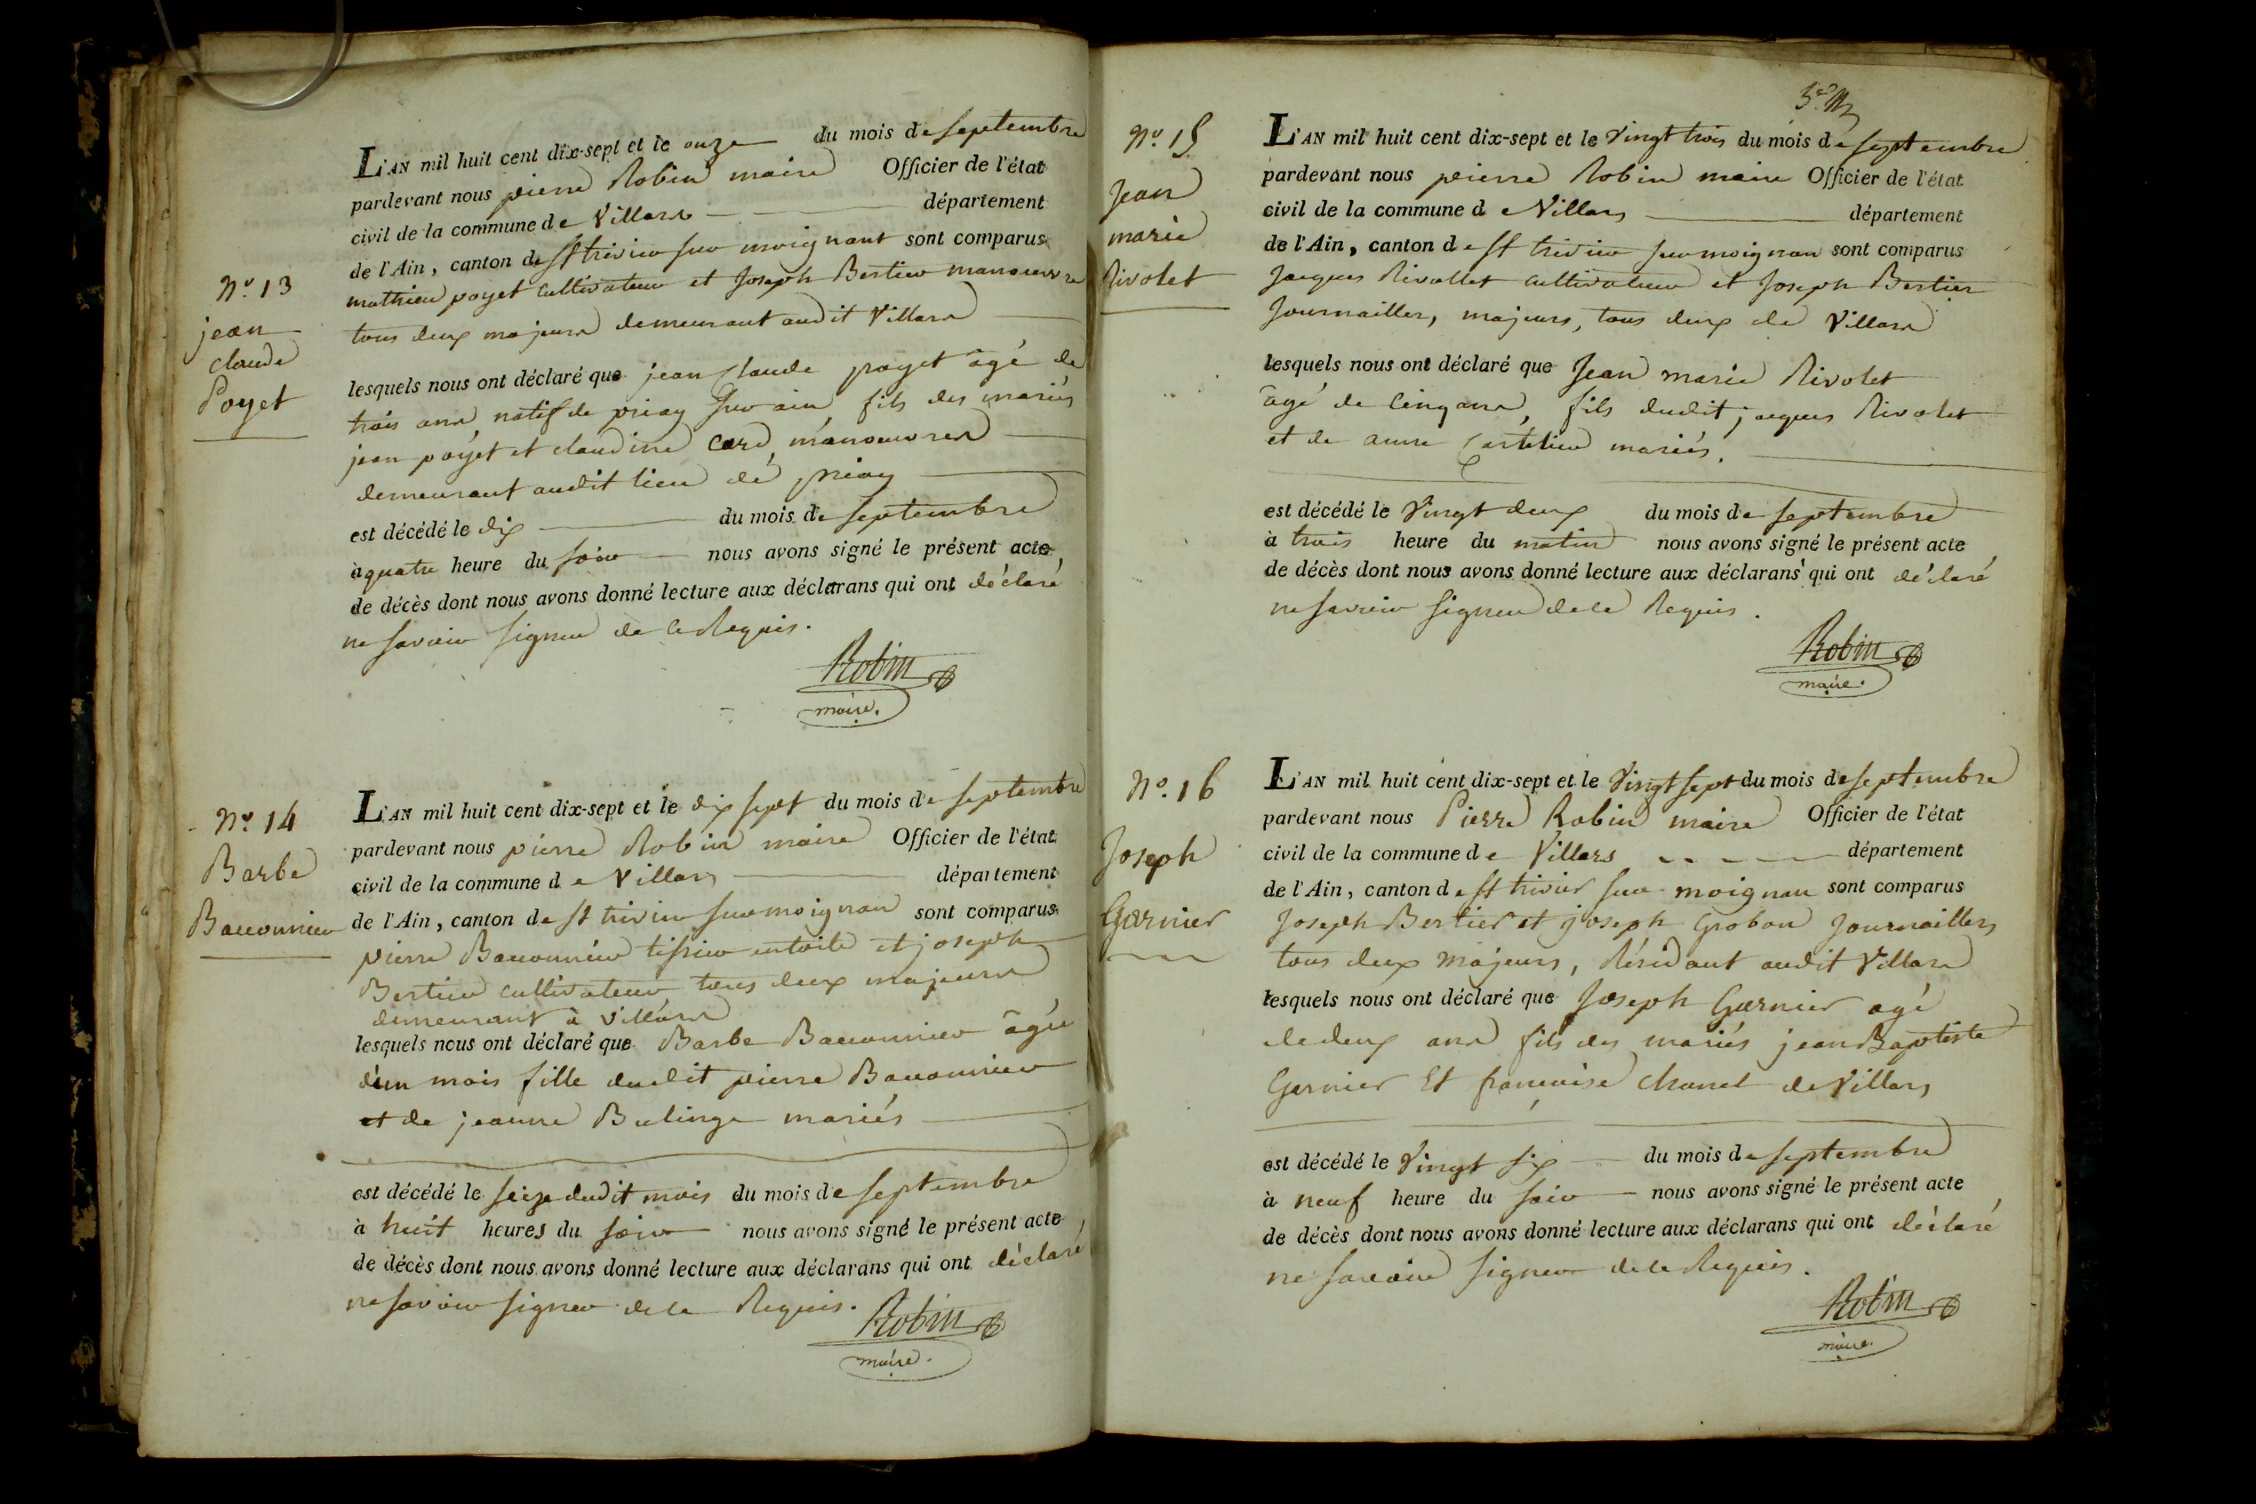 L'AN mil huit cent dix-sept et le onze du mois de septembre
pardevant nous pierre Robin maire Officier de l'état
civil de la commune de Villars département
de l'Ain, canton de st trivier sur moignant sont comparus
mathieu poyet cultivateur et Joseph Bertier manoeuvre
tous deux majeurs demeurant audit Villars
N.º 13
jean
claude
Poyet
lesquels nous ont déclaré que jean Claude poyet âgé de
trois ans, natif de priay sur ain, fils des mariés
jean poyet et claudine card, manoeuvres
demeurant audit lieu de priay
est décédé le dix du mois de septembre
à quatre heure du soir nous avons signé le présent acte
de décès dont nous avons donné lecture aux déclarans qui ont déclaré
ne savoir signer de ce Requis.
Robin
maire.
N.º 14
Barbe
Bauonnier
L'AN mil huit cent dix-sept et le dix sept du mois de septembre
pardevant nous pierre Robin maire Officier de l'état
civil de la commune de Villars département
de l'Ain, canton de st trivier sur moignan sont comparus
pierre Bauonnier tissier en toile et joseph
Bertier cultivateur tous deux majeurs
demeurant à Villars
lesquels nous ont déclaré que Barbe Bauonnier âgée
d'un mois fille dudit pierre Bauonnier
et de jeanne Bulinge mariés
est décédé le seize dudit mois du mois de septembre
à huit heures du soir nous avons signé le présent acte
de décès dont nous avons donné lecture aux déclarans qui ont déclaré,
ne savoir signer de ce Requis.
Robin
maire.
N.º 15
Jean
marie
Rivolet
L'AN mil huit cent dix-sept et le Vingt trois du mois de septembre
pardevant nous pierre Robin maire Officier de l'état
civil de la commune de Villars département
de l'Ain, canton de st trivier sur moignan sont comparus
Jacques Rivollet cultivateur et Joseph Bertier
Journaillers, majeurs, tous deux de Villars
lesquels nous ont déclaré que Jean marie Rivolet
âgé de cinq ans, fils dudit jacques Rivolet
et de anne mariés.
est décédé le Vingt deux du mois de septembre
à trois heure du matin nous avons signé le présent acte
de décès dont nous avons donné lecture aux déclarans qui ont déclaré
ne savoir signer de ce Requis.
Robin
maire.
N.º 16
Joseph
Garnier
L'AN mil huit cent dix-sept et le Vingt sept du mois de septembre
pardevant nous Pierre Robin maire Officier de l'état
civil de la commune de Villars département
de l'Ain, canton de st trivier sur moignan sont comparus
Joseph Bertier et joseph Grobon Journaillers
tous deux majeurs, Résidant audit Villars
lesquels nous ont déclaré que Joseph Garnier agé
de deux ans fils des mariés jean Baptiste
Garnier Et françoise chanel de Villars
est décédé le Vingt six du mois de septembre
à neuf heure du soir nous avons signé le présent acte
de décès dont nous avons donné lecture aux déclarans qui ont déclaré,
ne savoir signer de ce Requis.
Robin
maire.